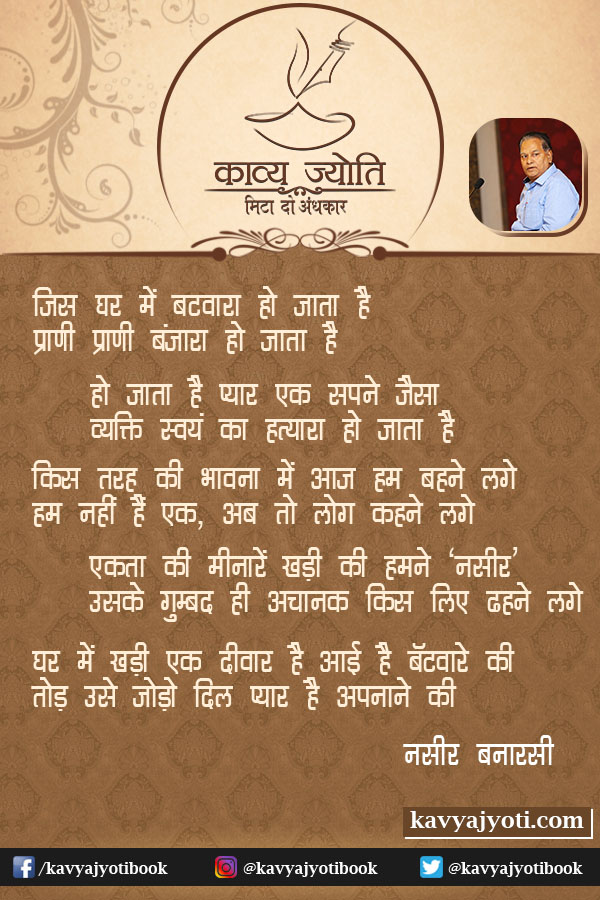 काव्य ज्योति
मिटा दो अंधकार
जिस घर में बटवारा हो जाता है
प्राणी प्राणी बंजारा हो जाता है
हो जाता है प्यार एक सपने जैसा
व्यक्ति स्वयं का हत्यारा हो जाता है
किस तरह की भावना में आज हम बहने लगे
हम नहीं हैं एक, अब तो लोग कहने लगे
एकता की मीनारें खड़ी की हमने ‘नसीर’
उसके गुम्बद ही अचानक किस लिए ढहने लगे
घर में खड़ी एक दीवार है आई है बॅटवारे की
तोड़ उसे जोड़ो दिल प्यार है अपनाने की
नसीर बनारसी
kavyajyoti.com
/kavyajyotibook @kavyajyotibook @kavyajyotibook